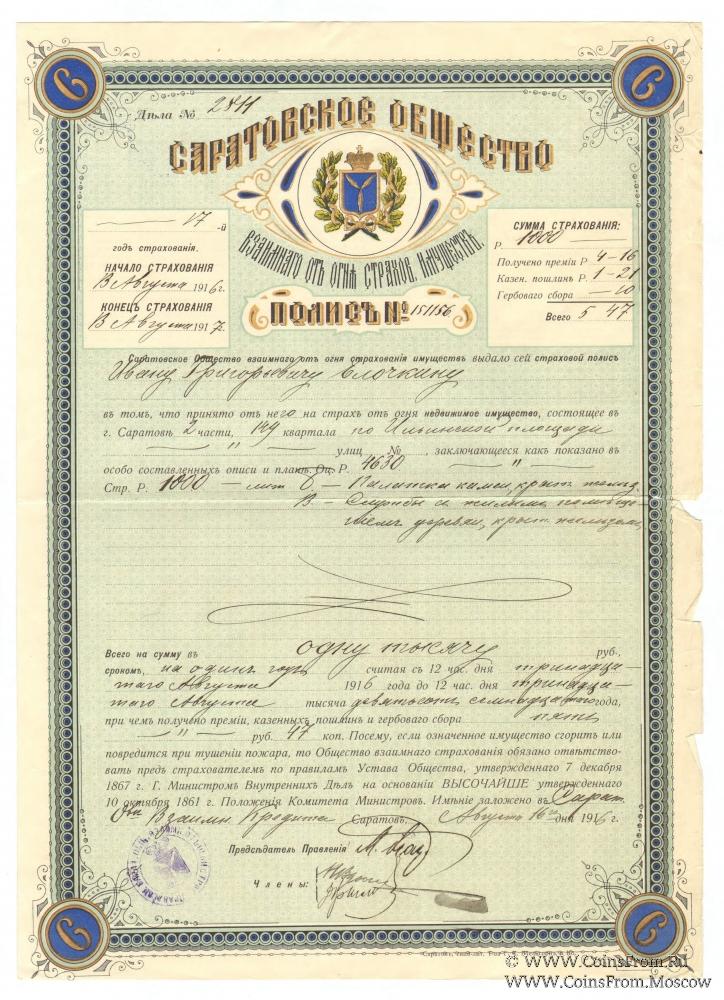 Дѣла № 2811
САРАТОВСКОЕ ОБЩЕСТВО
ВЗАИМНАГО ОТЪ ОГНЯ СТРАХОВ. ИМУЩЕСТВЪ.
ПОЛИСЪ № 151156
17-й
годъ страхованія.
НАЧАЛО СТРАХОВАНІЯ
Августа 1916 г.
КОНЕЦЪ СТРАХОВАНІЯ
Августа 1917 г.
СУММА СТРАХОВАНІЯ:
Р. 1000
Получено преміи Р. 4-16
Казен. пошлинъ Р. 1-21
Гербоваго сбора 10
Всего 5 47
Саратовское Общество взаимнаго отъ огня страхованія имуществъ выдало сей страховой полисъ
Ивану Григорьевичу Елочкину
въ томъ, что принято отъ него на страхъ отъ огня недвижимое имущество, состоящее въ
г. Саратовѣ 2 части, квартала по Ильинской площади
" улиц № , заключающееся какъ показано въ
особо составленныхъ описи и планѣ. Оц. Р. 4630 "
Стр. Р. 1000 — лит Б. — Палатка камен, крыт. желѣз.
В — Службы съ жилымъ помѣще-
ніемъ деревян, крыт. желѣзомъ,
Всего на сумму въ одну тысячу рубл.,
срокомъ, на одинъ годъ считая съ 12 час. дня тринадца-
таго Августа 1916 года до 12 час. дня тринадца-
таго Августа тысяча девятьсотъ семнадцатаго года,
при чемъ получено преміи, казенныхъ пошлинъ и гербоваго сбора пять
" руб. 47 коп. Посему, если означенное имущество сгоритъ или
повредится при тушеніи пожара, то Общество взаимнаго страхованія обязано отвѣтствовать
предъ страхователемъ по правиламъ Устава Общества, утвержденнаго 7 декабря
1867 г. Г. Министромъ Внутреннихъ Дѣлъ на основаніи ВЫСОЧАЙШЕ утвержденнаго
10 октября 1861 г. Положенія Комитета Министровъ. Имѣніе заложено въ Сарат.
Об. Взаимн. Кредита Саратовъ, Августа 16 дня 1916 г.
Предсѣдатель Правленія
Члены:
© WWW.CoinsFrom.Ru
WWW.CoinsFrom.Moscow